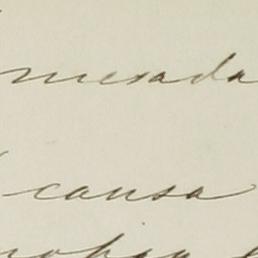 mesada
causa